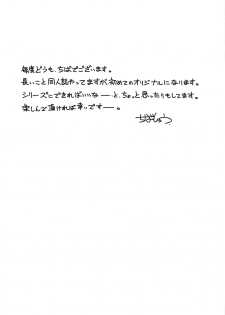 毎度どうも、ちばでございます。
長いこと同人誌やってますが、初めてのオリジナルになります。
シリーズにできればいいなーと、ちょっと思ったりもしてます。
楽しんで頂ければ幸いですー。